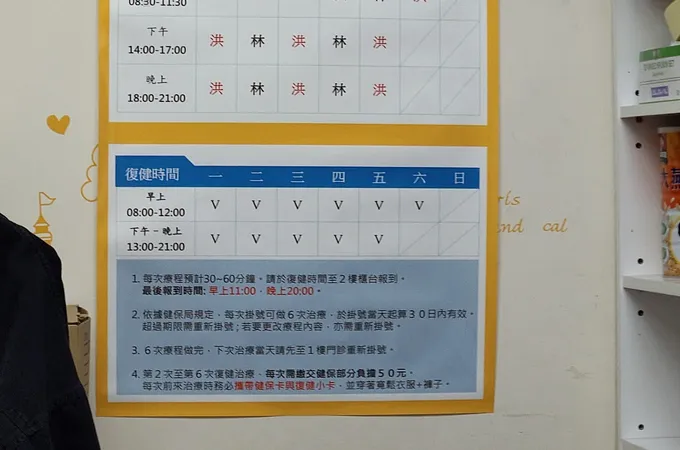 08:30-11:30
下午
14:00-17:00 洪 林 洪 林 洪
晚上
18:00-21:00 洪 林 洪 林 洪
復健時間 一 二 三 四 五 六 日
早上
08:00-12:00 V V V V V V
下午－晚上
13:00-21:00 V V V V V
1. 每次療程預計30~60分鐘。請於復健時間至2樓櫃台報到。
最後報到時間: 早上11:00，晚上20:00。
2. 依據健保局規定，每次掛號可做6次治療，於掛號當天起算30日內有效。
超過期限需重新掛號；若要更改療程內容，亦需重新掛號。
3. 6次療程做完，下次治療當天請先至1樓門診重新掛號。
4. 第2次至第6次復健治療，每次需繳交健保部分負擔50元。
每次前來治療時務必攜帶健保卡與復健小卡，並穿著寬鬆衣服+褲子。
and cal